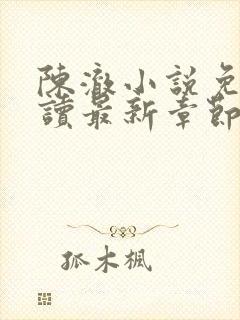 陳澈小說免
讀最新章節
孤木楓